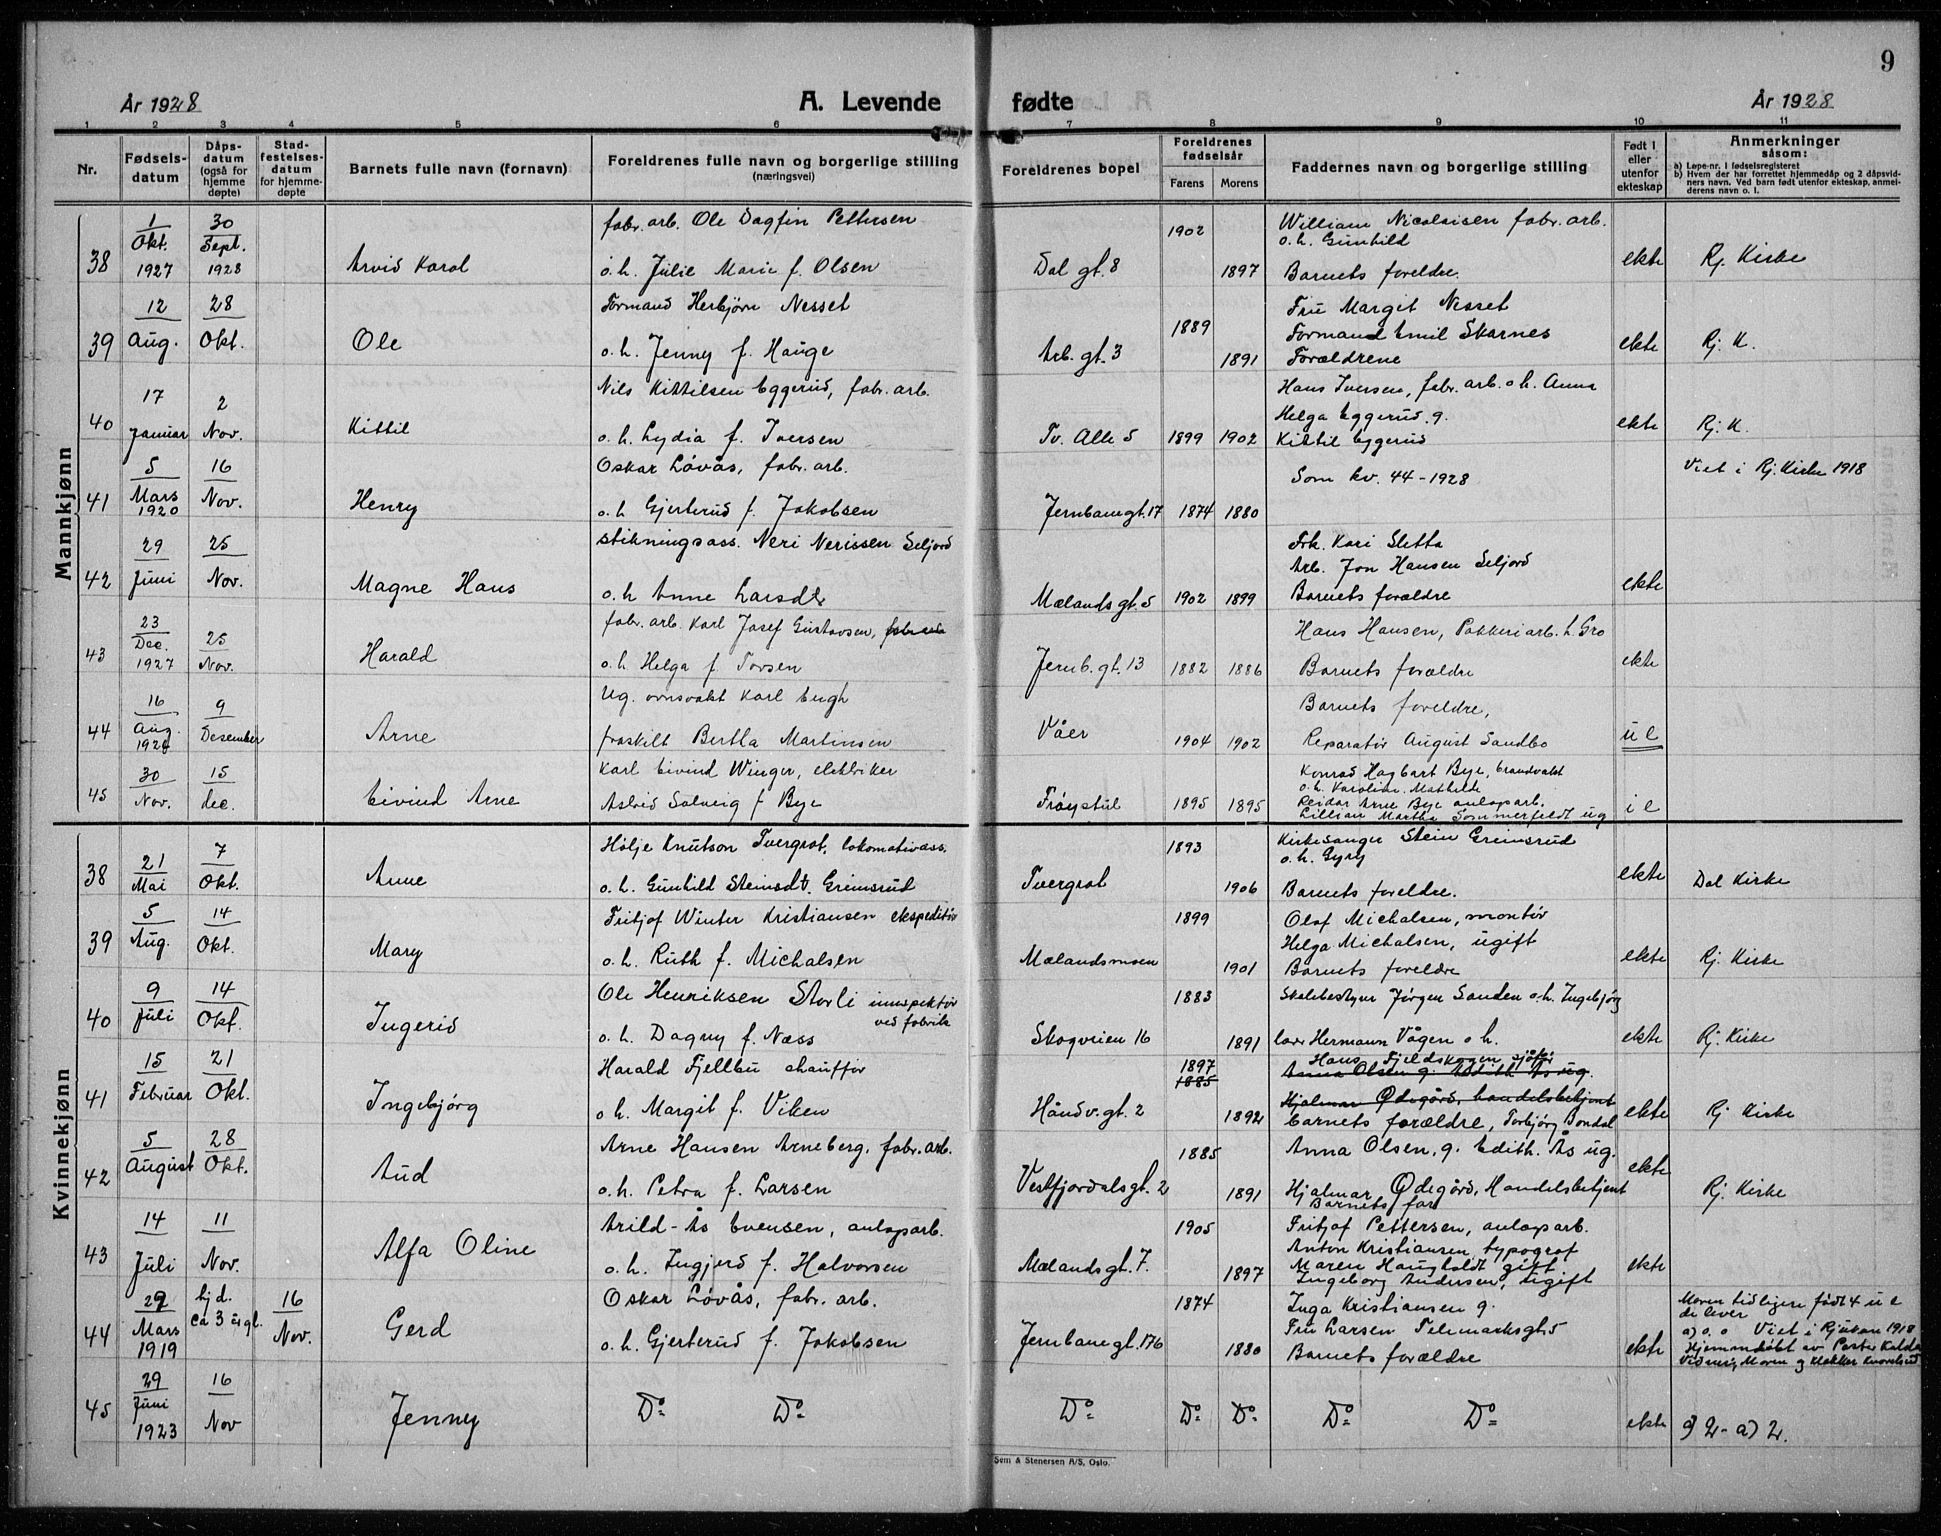 9
År 1928
A. Levende
fødte
År 1928
1 2 3 4 5 6 7 8 9 10 11
Nr.
Fødsels-
datum
Dåps-
datum
(også for
hjemme
døpte)
Stad-
festelses-
datum
for hjemme-
døpte
Barnets fulle navn (fornavn)
Foreldrenes fulle navn og borgerlige stilling
(næringsvei)
Foreldrenes bopel
Foreldrenes
fødselsår
Farens
Morens
Faddernes navn og borgerlige stilling
Født i
eller
utenfor
ekteskap
Anmerkninger
såsom:
a) Løpe-nr. i fødselsregisteret
b) Hvem der har forrettet hjemmedåp og 2 dåpsvid-
ners navn. Ved barn født utenfor ekteskap, anmel-
derens navn o. l.
Mannkjønn
38
1
Okt.
1927
30
Sept.
1928
Arvid Karol
fabr. arb. Ole Dagfin Pettersen
o.h. Julie Marie f. Olsen
Dal gt. 8
1902
1897
William Nicolaisen fabr. arb.
o.h. Gunhild
Barnets foreldre.
ekte
Rj. Kirke
39
12
Aug.
28
Okt.
Ole
Formand Herbjørn Nesset
o.h. Jenny f. Hauge
Arb. gt. 3
1889
1891
Fru Margit Nesset
Formand Emil Skarnes
Forældrene
ekte
Rj. K.
40
17
Januar
2
Nov.
Kittil
Nils Kittilsen Eggerud, fabr. arb.
o.h. Lydia f. Iversen
Tv. Alle 5
1899
1902
Hans Iversen, fabr. arb. o.h. Anna
Helga Eggerud g.
Kittil Eggerud
ekte
Rj. K.
41
5
Mars
1920
16
Nov.
Henry
Oskar Løvås, fabr. arb.
o.h. Gjertrud f. Jakobsen
Jernbanegt. 17
1874
1880
Som kv. 44-1928
Viet i Rj. Kirke 1918
42
29
Juni
25
Nov.
Magne Hans
stikningsass. Neri Nerissen Seljord
o.h Anne Larsdtr
Mælandsgt. 5
1902
1899
Frk. Kari Sletta
Arb. Jon Hansen Seljord
Barnets forældre
ekte
43
23
Dec.
1927
25
Nov.
Harald
fabr. arb. Karl Josef Gustavsen,
o.h Helga f. Torsen
Jernb. gt. 13
1882
1886
Hans Hansen, Pakkeriarb. h. Gro
Barnets forældre
ekte
44
16
Aug.
9
Desember
Arne
Ug. ovnsvakt Karl Engh
fraskilt Bertha Martinsen
Våer
1904
1902
Barnets foreldre,
Reparatør August Sandbo
u e
45
30
Nov.
15
dec.
Eivind Arne
Karl Eivind Winger, elektriker
Astrid Solveig f Bye
Frøystul
1895
1895
Konrad Hagbart Bye, brandvakt
o.h. Karoline Mathilde
Reidar Arne Bye anlagsarb.
Lillian Martha Sommerfeldt ug
i e
Kvinnekjønn
38
21
Mai
7
Okt.
Anne
Hølje Knutson Tvergrot, lokomotivass.
o.h. Gunhild Steinsdt. Grimsrud
Tvergrot
1893
1906
Kirkesanger Stein Grimsrud
o.h. Gyry
Barnets foreldre.
ekte
Dal Kirke
39
5
Aug.
14
Okt.
Mary
Fritjof Winter Kristiansen ekspeditør
o.h. Ruth f. Michalsen
Mælandsmoen
1899
1901
Olaf Michalsen, montør
Helga Michalsen, ugift
Barnets foreldre
ekte
Rj. Kirke
40
9
Juli
14
Okt.
Ingerid
Ole Henriksen Storli innspektør
ved fabrik
o.h. Dagny f. Næss
Skogveien 16
1883
1891
Skolebestyrer Jørgen Sanden o.h. Ingebjørg
Hermann Vågen o h.
ekte
Rj. Kirke
41
15
Februar
21
Okt.
Ingebjørg
Harald Fjellbu chauffør
o.h. Margit f. Viken
Håndv. gt. 2
1897
1885
1892
Hans Fjeldskogen sjåfør
Anna Olsen g. Edith Ås ug.
Hjalmar Ødegård, handelsbetjent
Barnets forældre, Torbjørg Bondal
ekte
Rj Kirke
42
5
August
28
Okt.
Aud
Arne Hansen Arneberg, fabr. arb.
o.h. Petra f. Larsen
Vestfjordalsgt. 2
1885
1891
Anna Olsen, g. Edith. Ås ug.
Hjalmar Ødegård, Handelsbetjent
Barnets far
ekte
Rj. Kirke
43
14
Juli
11
Nov.
Alfa Oline
Arild-Ås Evensen, anlagsarb.
o.h. Ingjerd f. Halvorsen
Mælandsgt. 7.
1905
1897
Fritjof Pettersen, anlagsarb.
Anton Kristiansen typograf
Maren Haugholdt gift
Ingeborg Andersen, ugift
ekte
44
29
Mars
1919
hjd.
ca 3 ugl.
16
Nov.
Gerd
Oskar Løvås, fabr. arb.
o.h. Gjertrud f. Jakobsen
Jernbanegt. 17b
1874
1880
Inga Kristiansen g.
Fru Larsen Telemarksgt. 5
Barnets forældre
ekte
Moren tidligere født 4 u e
de lever
a) o. o Viet i Rjukan 1918
Hjemmdøbt av Pastor
Vidner, Moren og klokker
45
29
Juni
1923
16
Nov
Jenny
Do Do
Do
Do
Do
Do Do
ekte
2 - a) 2.
Sem & Stenersen A/S, Oslo.